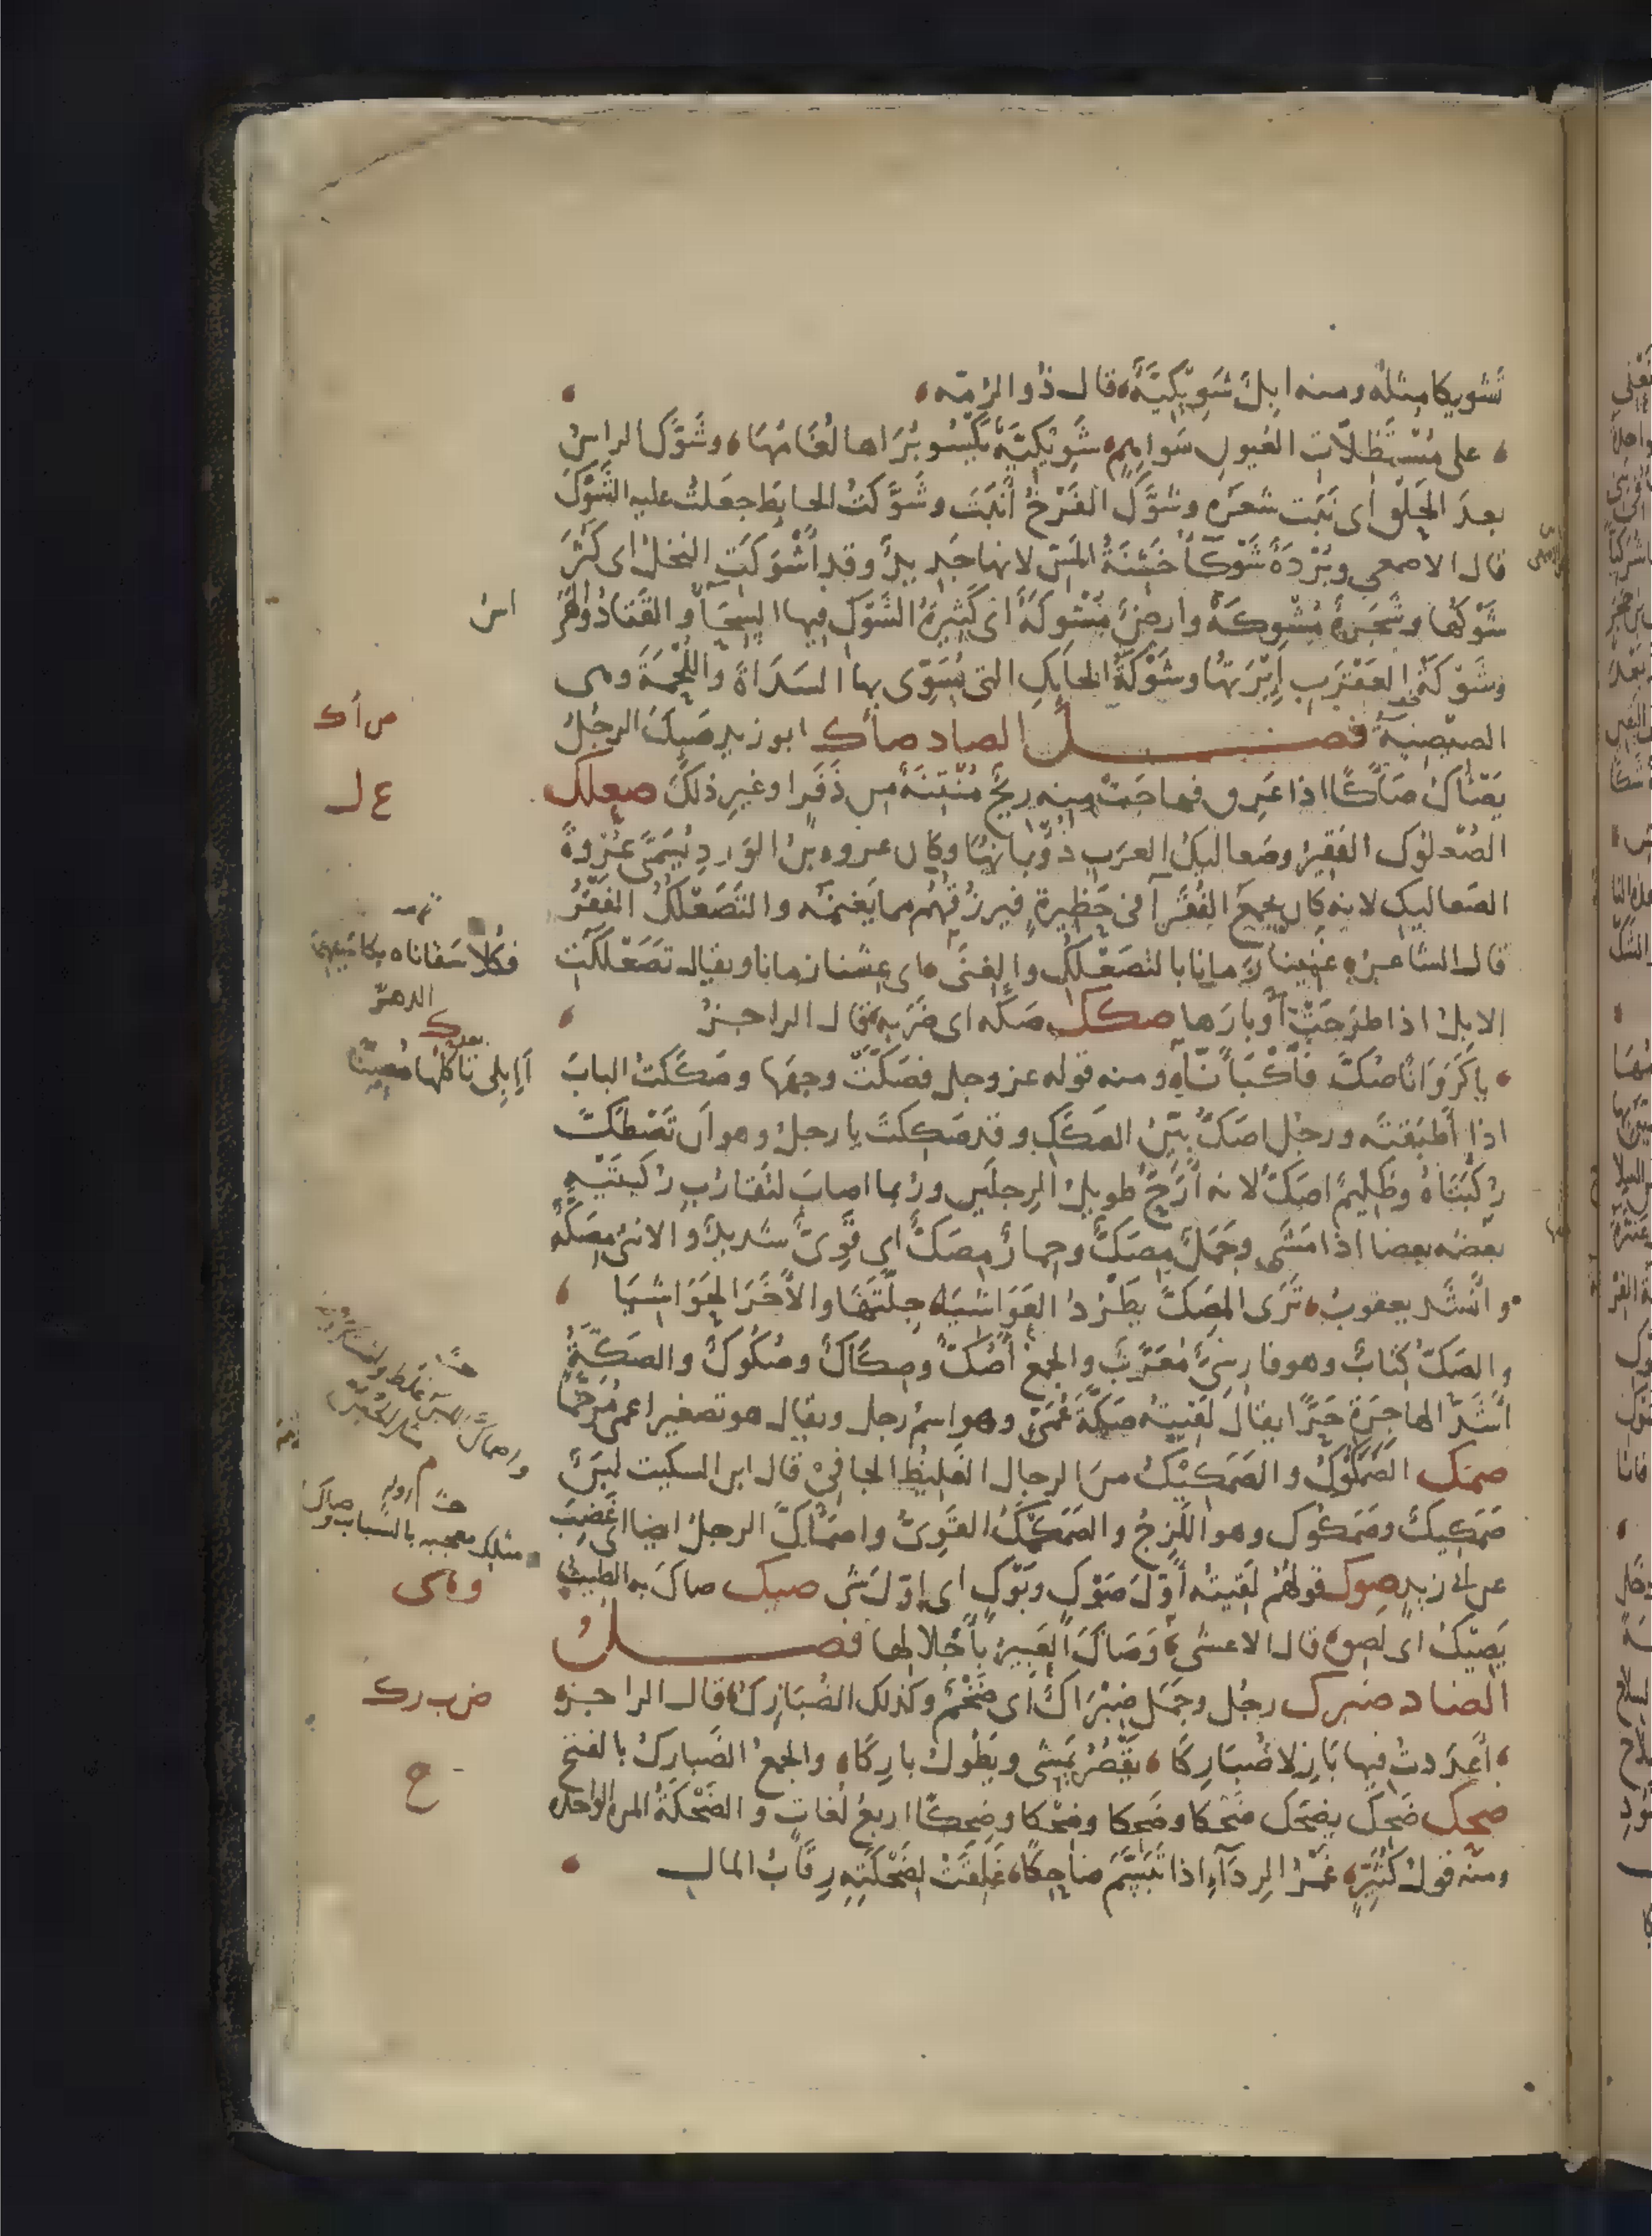 تَشْويكا مثله ومنه ابلٌ شُوَيْكِيَّةٌ قال ذُو الرُمّه
على مُسْتَظِلّاتِ العُيونِ سَواهِمٍ شُوَيْكِيَّةٍ يَكْسُو بُرَاها لُغَامُهَا وشَوَّكَ الراسُ
بعدَ الحَلْق اى نَبَت شعَره وشَوَّكَ الفَرْخُ أَنْبَتَ وشَوَّكتُ الحايطَ جعَلتُ عليه الشَوْكَ
قال الاصمعي وبُرْدَةٌ شَوْكَآءُ خَشِنَةُ المَسِّ لانها جَدِيدٌ وقد أَشْوَكَتِ النخلُ اى كَثُرَ
شَوْكُها وشَجَرةٌ مُشْوِكةٌ وارضٌ مُشْوِكَةٌ اى كَثِيرةُ الشَوْك فيها السِحَآءُ والقَتَادُ والهَرَاسُ
وشَوْكَةُ العَقْرَبِ إِبْرَتُهَا وشَوْكَةُ الحَايِكِ التى يُسَوِّى بها السَدَاةَ واللُحْمَةَ وهى
الصِيصِيَةُ فصل الصاد صأك ابو زيد صَئِكَ الرجُلُ
يَصْأَكُ صَأَكًا اذا عَرِق فهاجَتْ منه ريحٌ مُنْتِنَةٌ من ذَفَرٍ او غيرِ ذلكَ صعلك
الصُعْلُوك الفَقِيرُ وصَعاليكُ العرَبِ ذُؤْبانُهَا وكان عروه بنُ الوَرد يُسَمَّى عُرْوَةَ
الصَعاليكِ لانه كان يجمعُ الفُقَرآءَ فى حَظِيرةٍ فيَرزُقُهُم مما يَغْنَمُه والتَصَعْلُكُ الفَقْرُ
قال الشاعر غَنِينا زَمانًا بالتَصَعْلُكِ والغِنَى اى عِشنا زمانا ويقال تَصَعْلَكَتِ
الابلُ اذا طرَحَتْ أَوْبارَها صكك صَكّه اى ضَرَبه قال الراجزُ
يا كَرَوَانًا صُكَّ فَاكْبَأَنَّا ومنه قوله عز وجل فصَكَّتْ وجهَهَا وصَكَكتُ البابَ
اذا أَطبَقتَه ورجُل اصَكُّ بيّنُ الصَكَكِ وقد صَكِكتَ يا رجلُ وهو أن تَصْطَكَّ
رُكبَتاهُ وظَلِيمٌ اصَكُّ لانه أَرَحُّ طويلُ الرِجلَين ورُبما اصابَ لتَقارُبِ رُكبتَيْهِ
بعضه بعضا اذا مَشَى وجَمَلٌ مِصَكٌّ وحِمارٌ مِصَكٌّ اى قَوِىٌّ شديدٌ والانثى مِصَكّة
وانشد يعقوب تَرَى المِصَكَّ يَطْرُدُ العَوَاشيَا جِلَّتَهَا والأُخَرَ الحَوَاشِيَا
والصَكُّ كِتابٌ وهو فارسىٌّ مُعَرَّبٌ والجمعُ أَصُكٌّ وصِكَاكٌ وصُكُوكٌ والصَكّةُ
أَشَدُّ الهاجرَةِ حَرًّا يقال لَقيتُه صَكَّةَ عُمَىٍّ وهو اسمُ رجل ويقال هو تصغير اعمى مُرَخَّمًا
صمك الصَمَكُوكُ والصَمَكِيكُ منَ الرجال الغَليظُ الجافِى قال ابن السكيت لبَنٌ
صَمَكِيكٌ وصَمَكُوك وهو اللَزِجُ والصَمَكْمَكُ القَوِىُّ واصمَأَكَّ الرجلُ ايضا اى غَضِبَ
عن ابى زيد صوك قولهُمْ لَقيتُه أَوّلَ صَوْكٍ وبَوْكٍ اى اوّلَ شىءٍ صيك صاكَ به الطيبُ
يَصِيكُ اى لَصِقَ قال الاعشى وَصَاكَ العَبِيرُ بأَجْلادِها فصل
الضاد ضبرك رجُل وجَمَل ضِبْرَاكٌ اى ضَخْمٌ وكذلك الضُبَارِكُ قال الراجزه
أَعدَدتُ فيها بَازِلا ضُبَارِكَا يَقْصُرُ يَمْشِى ويَطُولُ بارِكَا والجمعُ الضَبارِكُ بالفتح
ضحك ضَحِكَ يضحَك ضَحْكا وضَحِكا وضِحْكا وضِحِكًا اربعُ لُغاتٍ والضَحْكَةُ المره الواحده
ومنه قولُ كُثَيِّرٍ غَمْرُ الرِدَآءِ اذا تَبَسَّمَ ضاحِكًا غَلِقَتْ لِضَحْكَتِهِ رِقَابُ المالِ
ص أك
ع ل
فكلا سقاناه بكاسيهما
الدهرُ
و ه ى
ض ب رك
ح